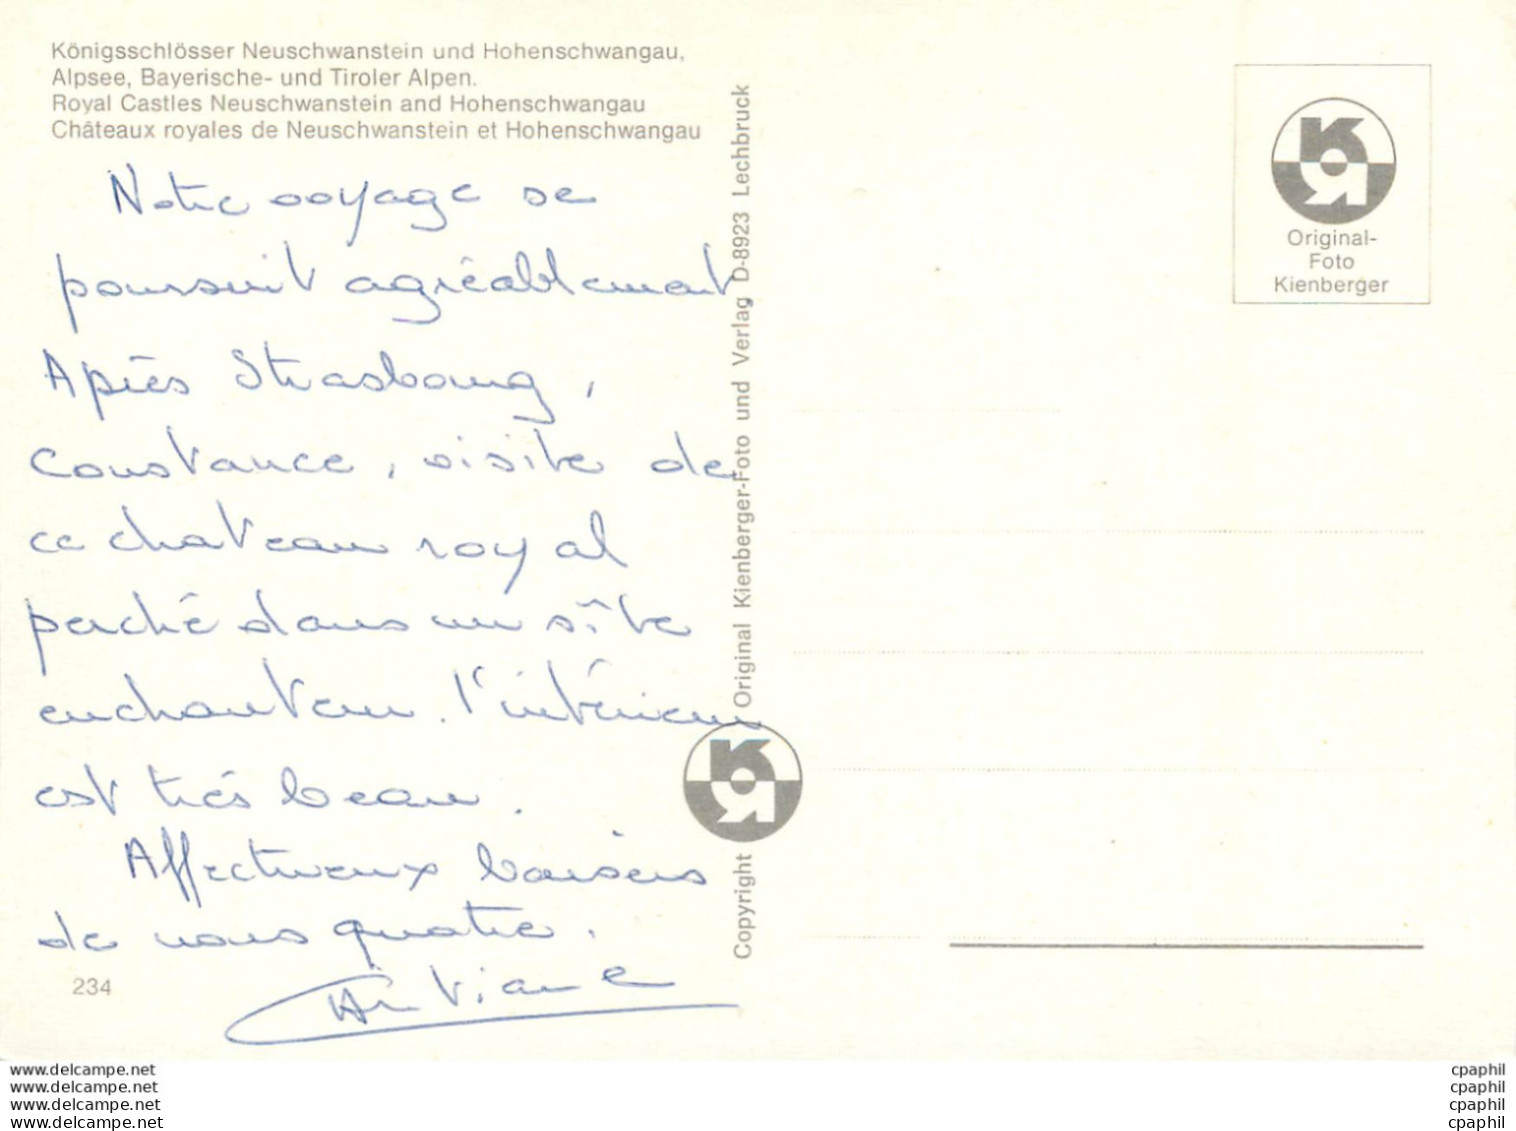 Königsschlösser Neuschwanstein und Hohenschwangau,
Alpsee, Bayerische- und Tiroler Alpen.
Royal Castles Neuschwanstein and Hohenschwangau
Châteaux royales de Neuschwanstein et Hohenschwangau
Notre voyage se
poursuit agréablement
Après Strasbourg,
Constance, visite de
ce chateau royal
perché dans un sîte
enchanteur. l'intérieur
est très beau.
Affectueux baisers
de nous quatre.
234
Copyright Original Kienberger-Foto und Verlag D-8923 Lechbruck
Original-
Foto
Kienberger
www.delcampe.net
www.delcampe.net
www.delcampe.net
www.delcampe.net
cpaphil
cpaphil
cpaphil
cpaphil